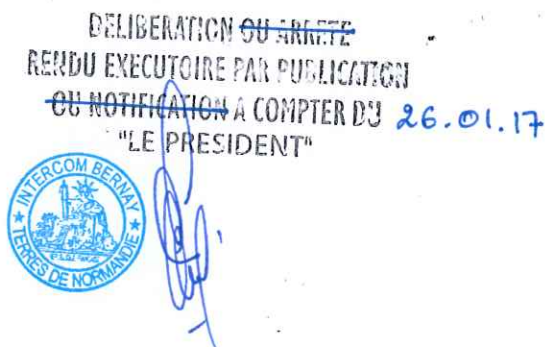 DELIBERATION OU ARRETE
RENDU EXECUTOIRE PAR PUBLICATION
OU NOTIFICATION A COMPTER DU 26.01.17
"LE PRESIDENT"
INTERCOM BERNAY
TERRES DE NORMANDIE